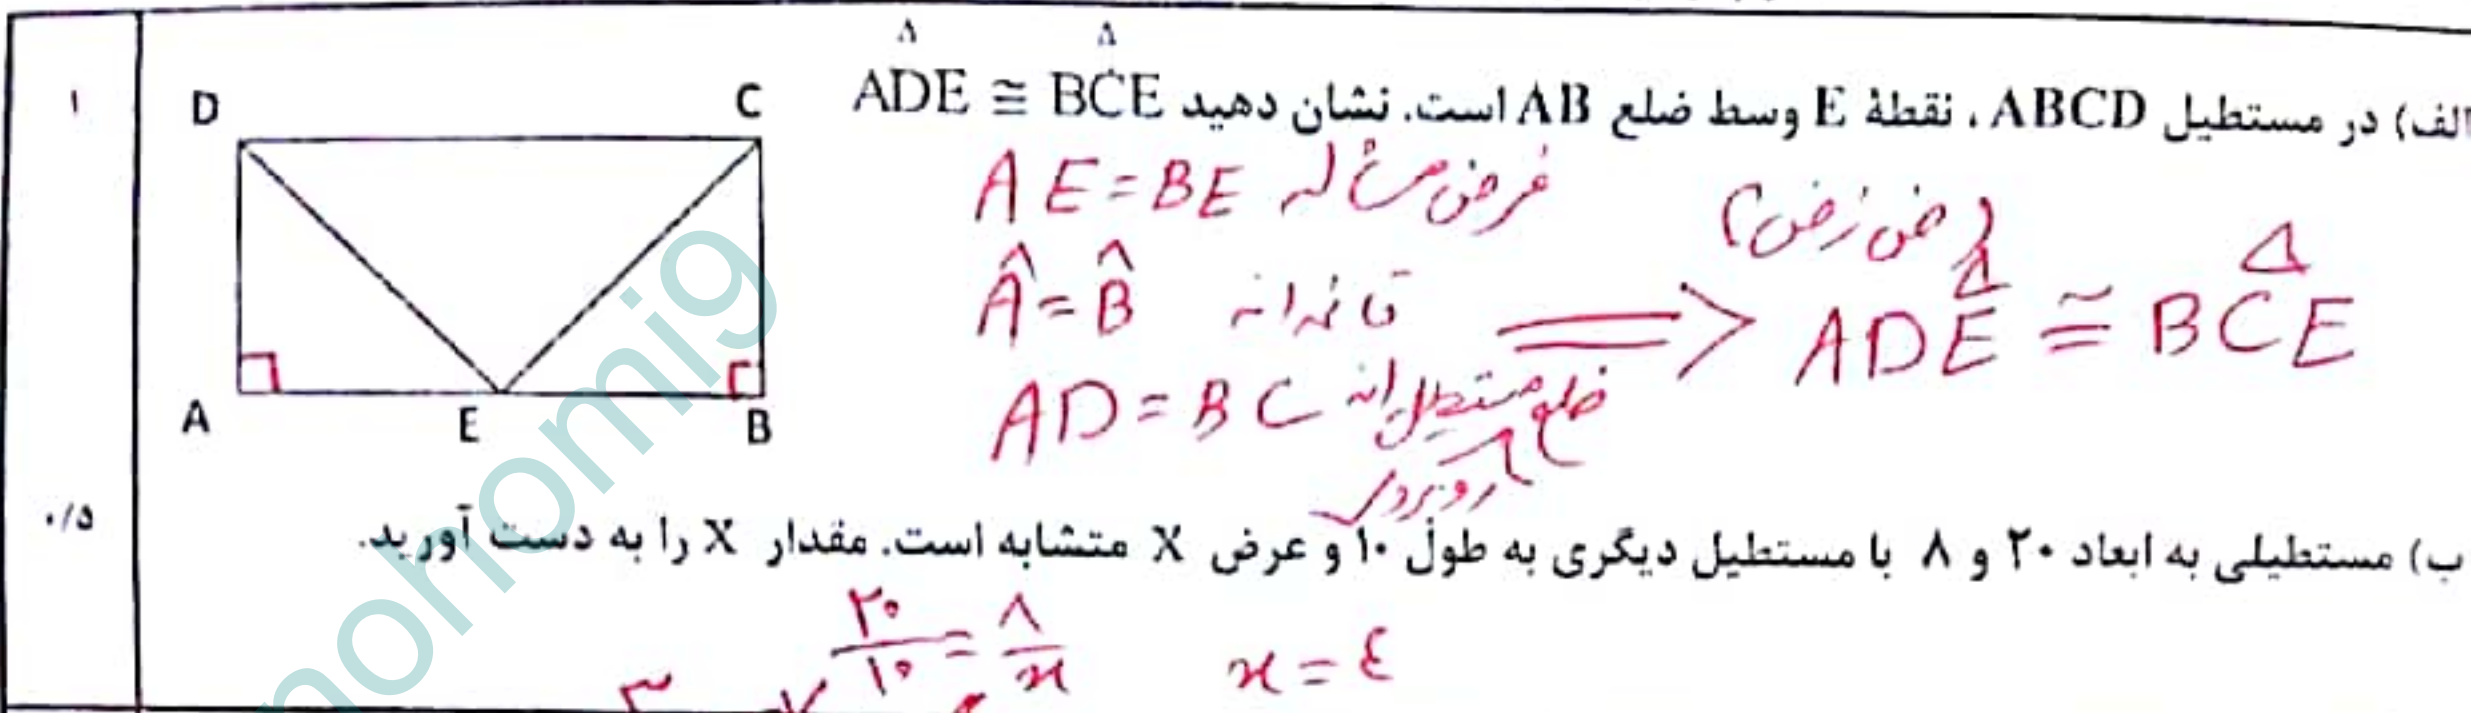 ۱
الف) در مستطیل ABCD ، نقطهٔ E وسط ضلع AB است. نشان دهید ADE ≅ BCE
D C
A E B
AE = BE فرض مسئله
Â = B̂ قائمه اند
AD = BC ضلع مستطیل اند
روبرو
(ض ز ض)
⇒ ADE ≅ BCE
۰/۵
ب) مستطیلی به ابعاد ۲۰ و ۸ با مستطیل دیگری به طول ۱۰ و عرض X متشابه است. مقدار X را به دست آورید.
۲۰/۱۰ = ۸/x x = ٤
nohomig